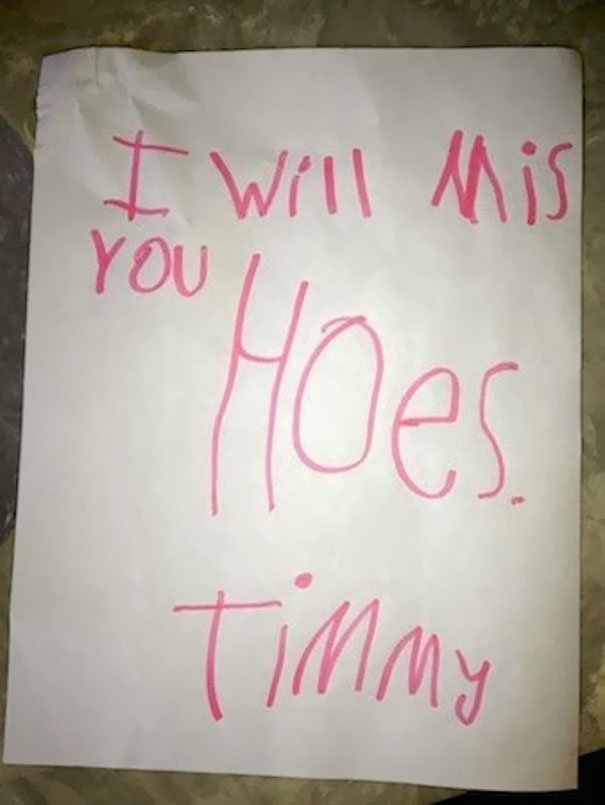 I Will Mis
YOU
HOes.
Timmy